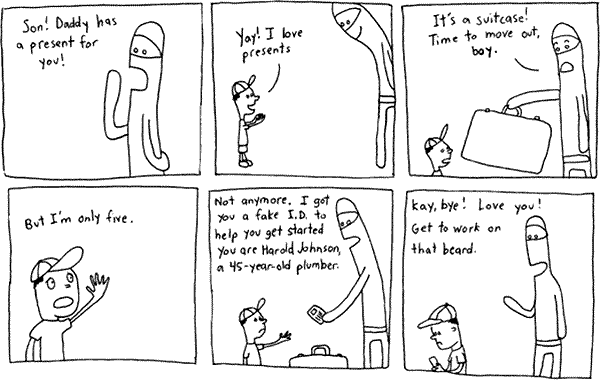 Son! Daddy has
a present for
you!
Yay! I love
presents
It's a suitcase!
Time to move out,
boy.
But I'm only five.
Not anymore. I got
you a fake I.D. to
help you get started
You are Harold Johnson,
a 45-year-old plumber.
kay, bye! Love you!
Get to work on
that beard.